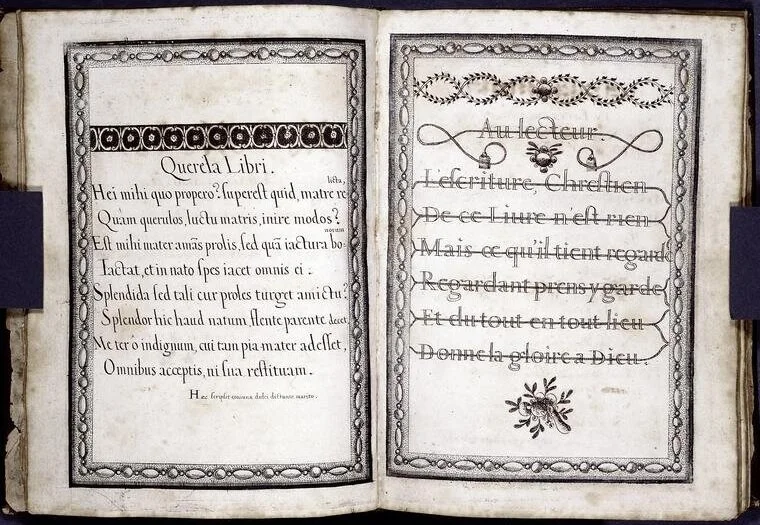 Querela Libri.
Hei mihi quo propero? ſupereſt quid, matre relicta,
Quàm querulos, luctu matris, inire modos?
Eſt mihi mater amãs prolis, ſed quã iactura bonorum
Iactat, et in nato ſpes iacet omnis ei.
Splendida ſed tali cur proles turget amictu?
Splendor hic haud natum, flente parente decet.
Me ter ô indignum, cui tam pia mater adeſſet,
Omnibus acceptis, ni ſua reſtituam.
Hec ſcripſit coniunx dulci dictante marito.
Au lecteur.
L'eſcriture, Chreſtien
De ce Liure n'eſt rien
Mais ce qu'il tient regarde
Regardant prens y garde
Et du tout en tout lieu
Donne la gloire a Dieu.